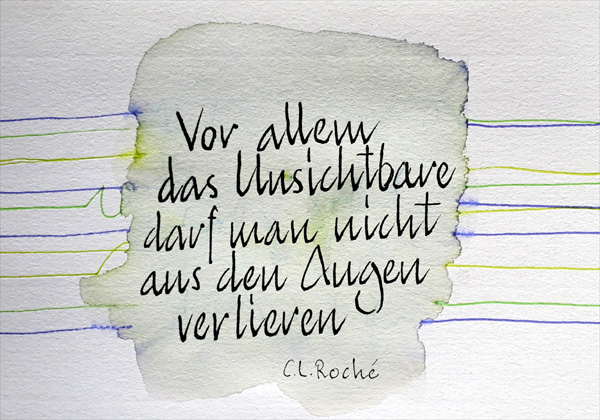 Vor allem
das Unsichtbare
darf man nicht
aus den Augen
verlieren
C.L.Roché